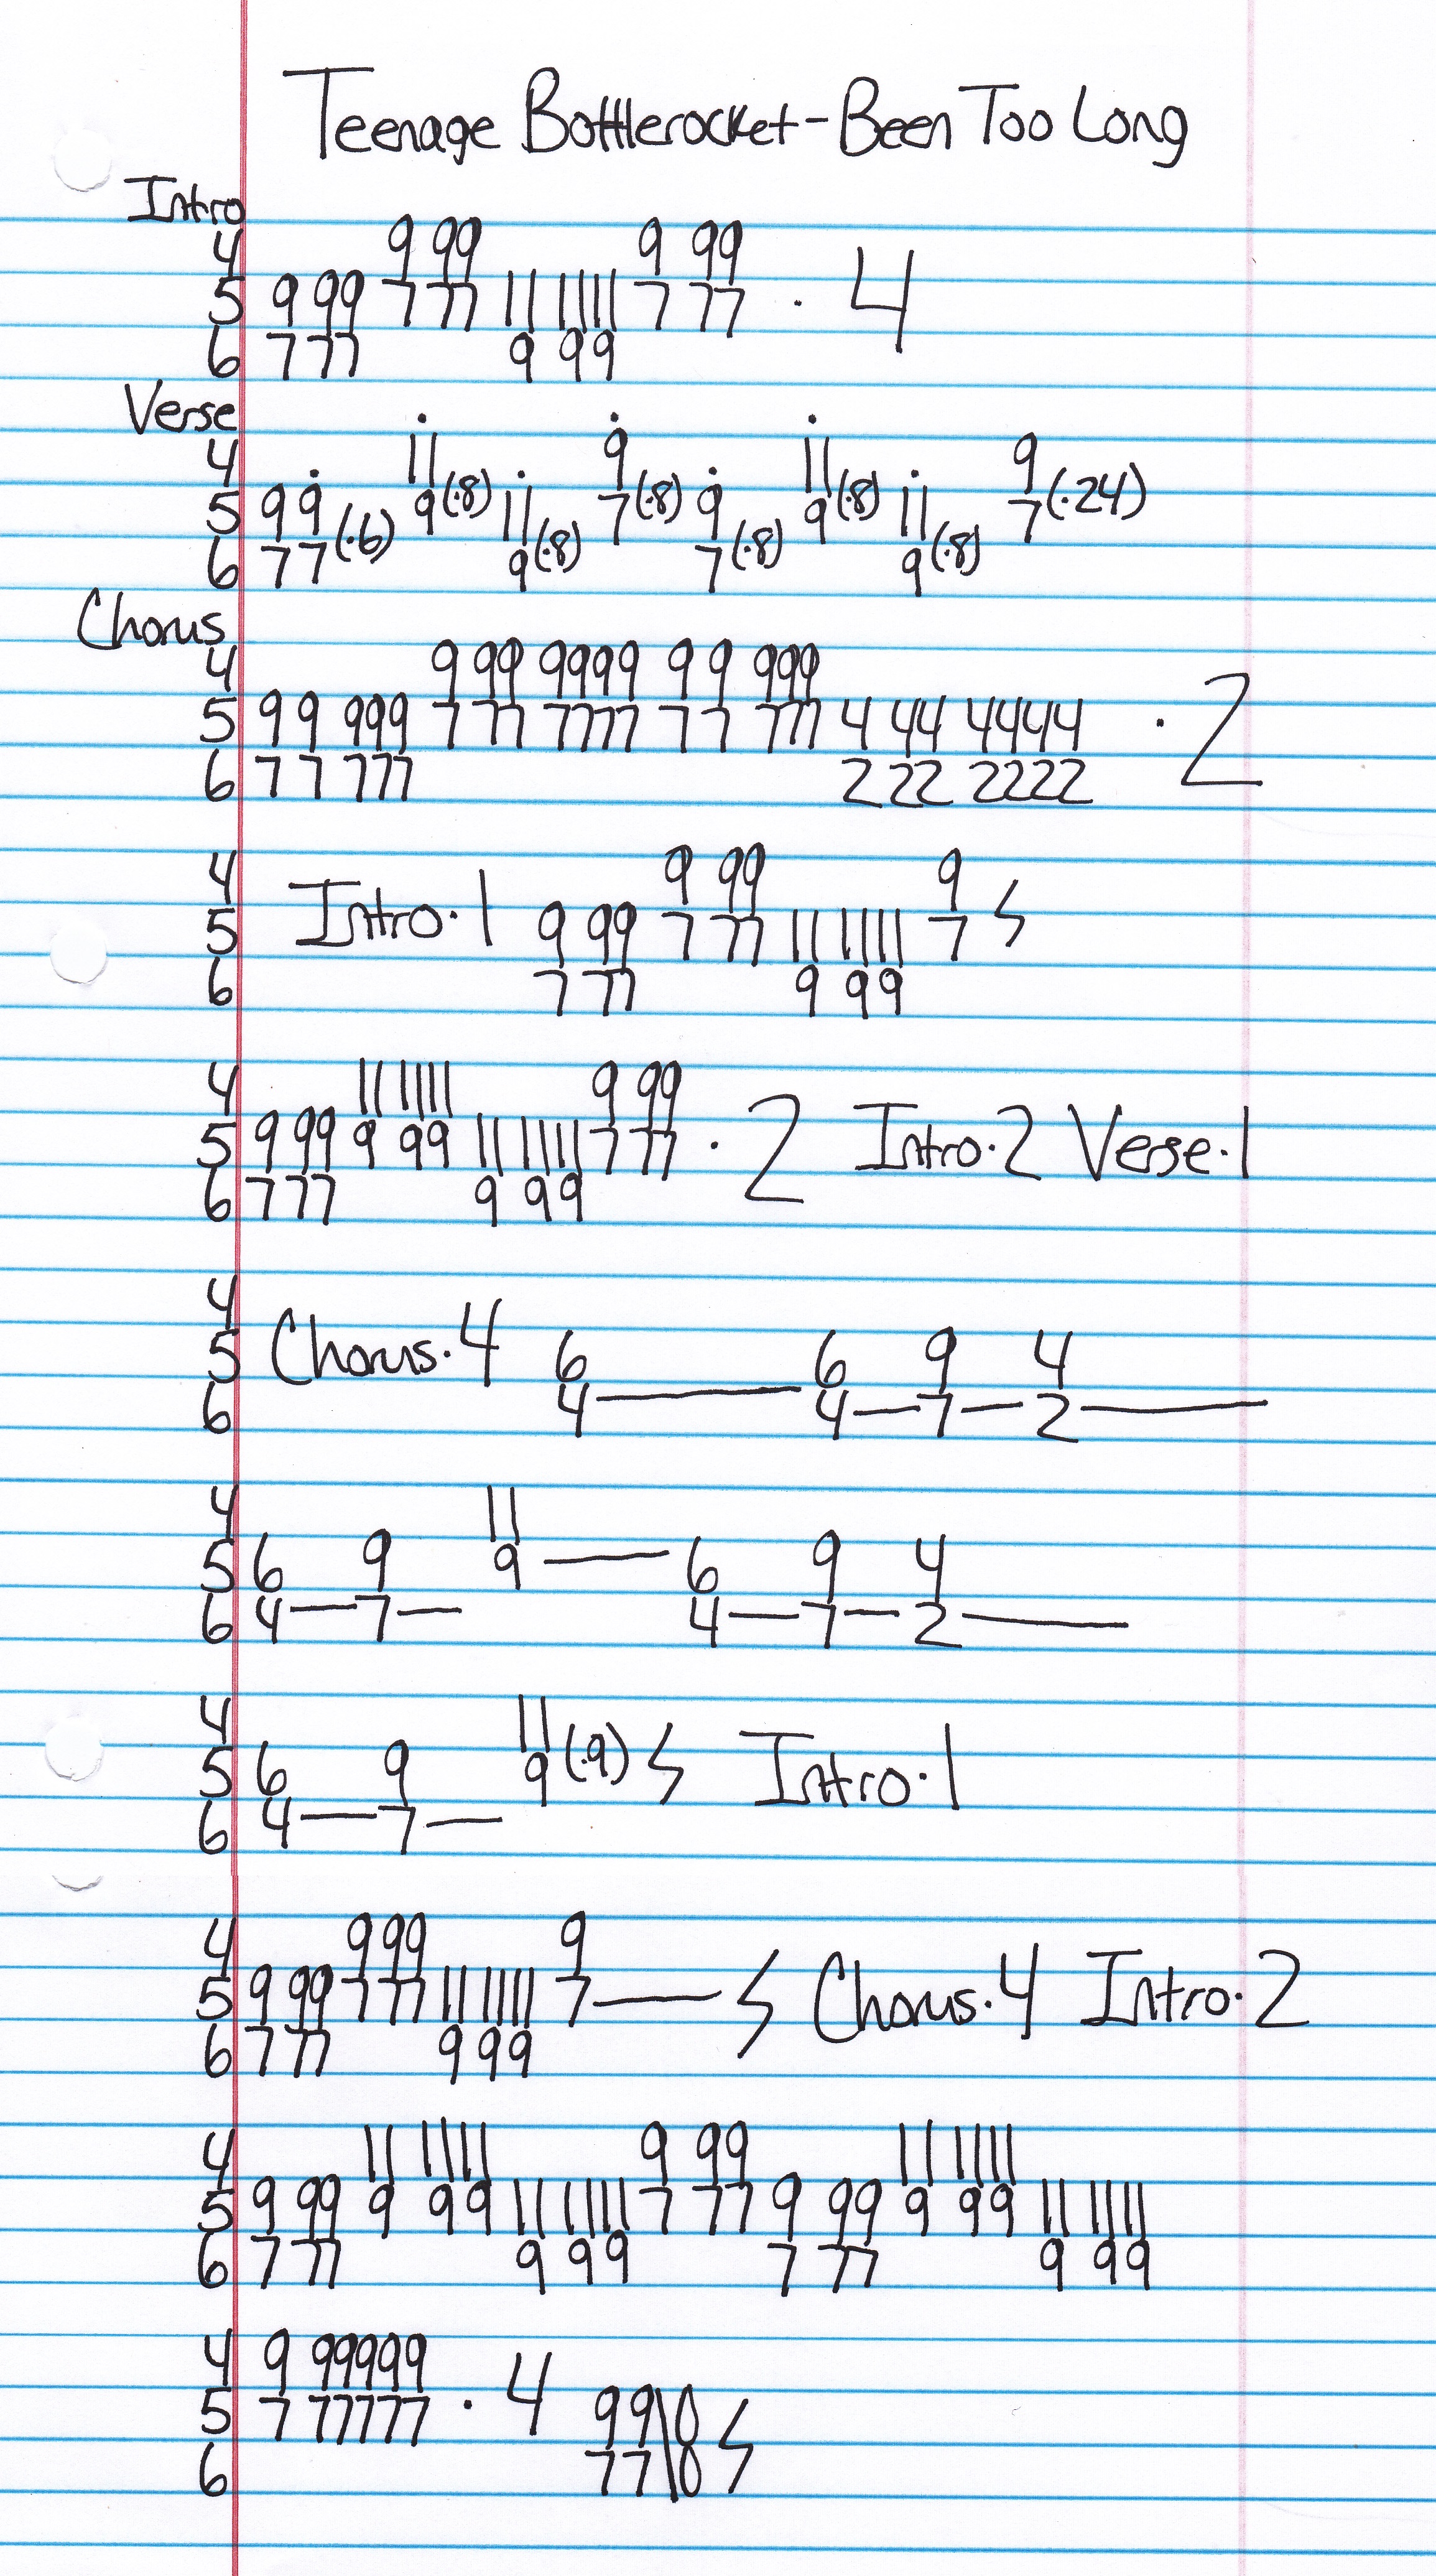 Teenage Bottlerocket - Been Too Long
Intro
4 9 99 9 99
5 9 99 7 77 11 1111 7 77 · 4
6 7 77 9 99
Verse
4 11 9 11 9
5 9 9 (·6) 9 (·8) 11 7 (·8) 9 9 (·8) 11 7 (·24)
6 7 7 9 (·8) 7 (·8) 9 (·8)
Chorus
4 9 999 9999 9 9 999
5 9 9 999 7 77 7777 7 7 777 4 44 4444 · 2
6 7 7 777 2 22 2222
4 9 99 9
5 Intro · 1 9 99 7 77 11 1111 7
6 7 77 9 99
4 11 1111 9 99
5 9 99 9 99 11 1111 7 77 · 2 Intro · 2 Verse · 1
6 7 77 9 99
4
5 Chorus · 4 6 6 9 4
6 4 — 4 — 7 — 2 —
4 11
5 6 9 9 — 6 9 4
6 4 — 7 — 4 — 7 — 2 —
4 11
5 6 9 9 (·9) Intro · 1
6 4 — 7 —
4 9 99 9
5 9 99 7 77 11 1111 7 — Chorus · 4 Intro · 2
6 7 77 9 99
4 11 1111 9 99 11 1111
5 9 99 9 99 11 1111 7 77 9 99 9 99 11 1111
6 7 77 9 99 7 77 9 99
4 9 99999
5 7 77777 · 4 99\0
6 77\0